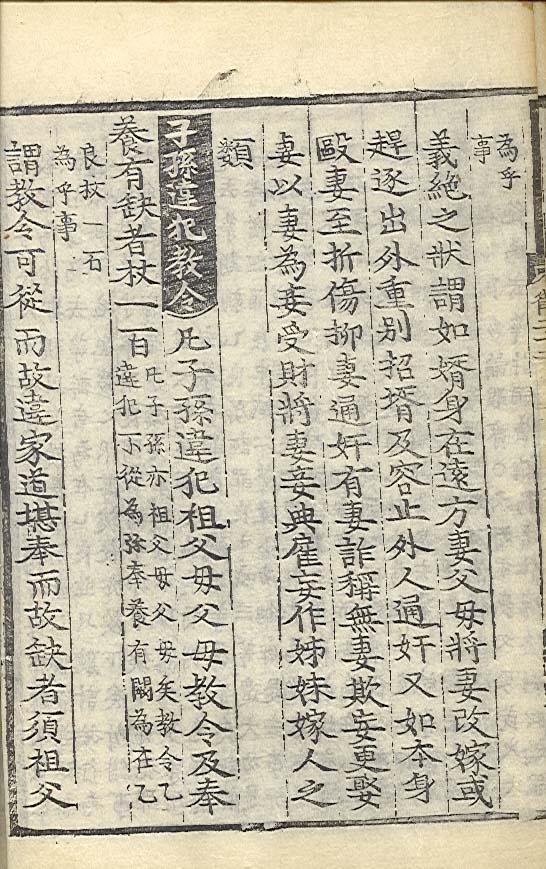 為乎
事
義絶之狀謂如婿身在遠方妻父母將妻改嫁或
趕逐出外重別招壻及容止外人通奸又如本身
毆妻至折傷抑妻通奸有妻詐稱無妻欺妄更娶
妻以妻為妾受財將妻妾典雇妄作姊妹嫁人之
類
子孫違犯教令 凡子孫違犯祖父母父母教令及奉
養有缺者杖一百
凡子孫亦祖父母父母矣教令乙
違犯不從為旀奉養有闕為在乙
良杖一百
為乎事
謂教令可從而故違家道堪奉而故缺者須祖父